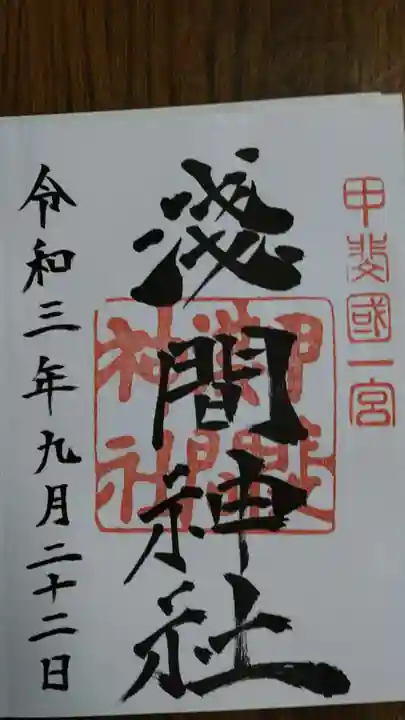 甲斐國一宮
淺間神社
甲斐
淺間
神社
令和三年九月二十二日